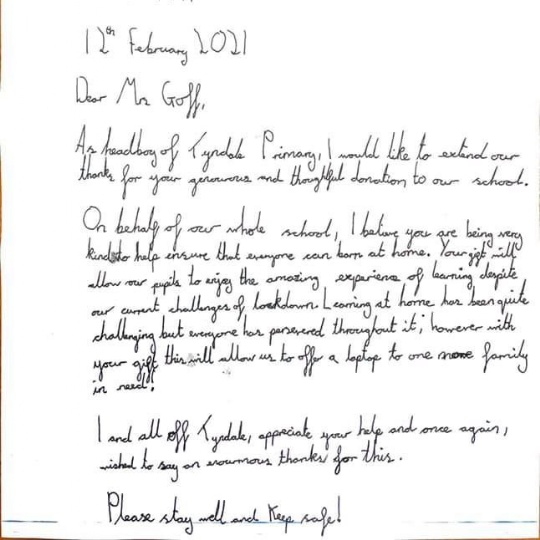 12th February 2021
Dear Mr Goff,
As headboy of Tyndale Primary, I would like to extend our
thanks for your generourus and thoughtful donation to our school.
On behalf of our whole school, I believe you are being very
kind to help ensure that everyone can learn at home. Your gift will
allow our pupils to enjoy the amazing experience of learning despite
our current challenges of lockdown. Learning at home has been quite
challenging but everyone has persevered throughout it; however with
your gift this will allow us to offer a laptop to one more family
in need!
I and all off Tyndale, appreciate your help and once again,
wished to say an enourmous thanks for this.
Please stay well and Keep safe!